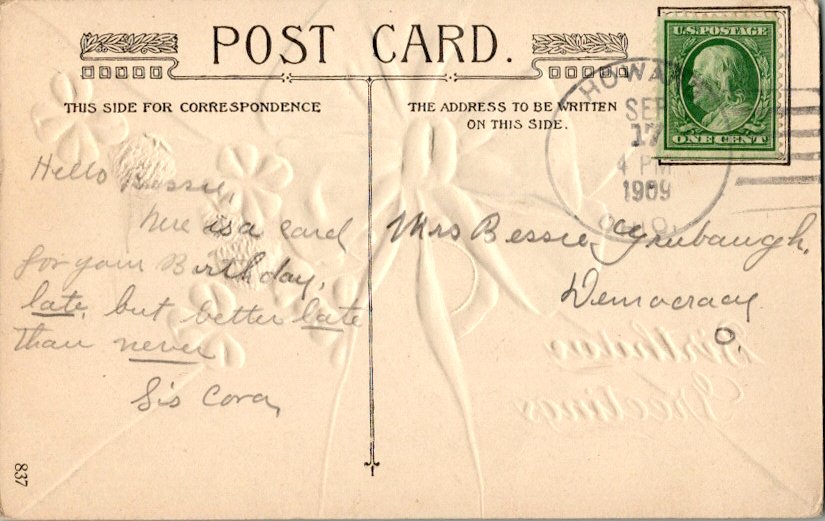 POST CARD.
THIS SIDE FOR CORRESPONDENCE
THE ADDRESS TO BE WRITTEN
ON THIS SIDE.
U.S. POSTAGE
ONE CENT
HOWARD
SEP
17
4 PM
1909
OHIO.
Hello Bessie,
here is a card
for your Birthday,
late, but better late
than never
Sis Cora,
Mrs Bessie Grubaugh.
Democracy
O.
Birthday
Greetings
837